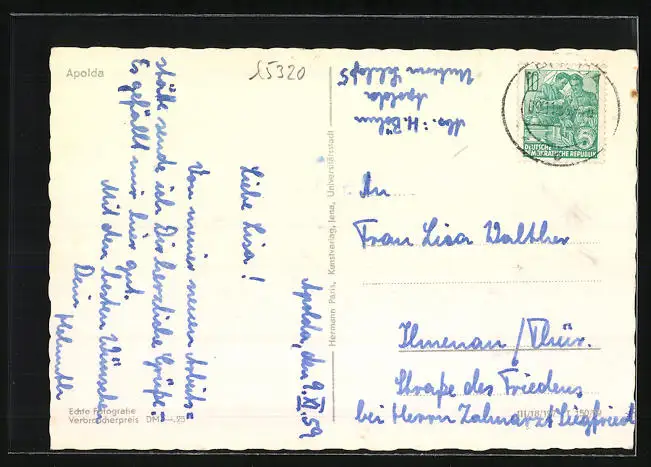 Apolda
15320
Apolda, den 9.XI.59
Liebe Lisa!
Von meiner neuen Arbeits=
stätte sende ich Dir herzliche Grüße.
Es gefällt mir hier gut.
Mit den besten Wünschen
Dein Helmuth
Echte Fotografie
Verbraucherpreis DM —.25
Hermann Paris, Kunstverlag, Jena, Universitätsstadt
Abs.: H. Böhm
Apolda
Unterm Schloß 5
10
DEUTSCHE
DEMOKRATISCHE REPUBLIK
5
An
Frau Lisa Walther
Ilmenau/Thür.
Straße des Friedens
bei Herrn Zahnarzt Siegfried